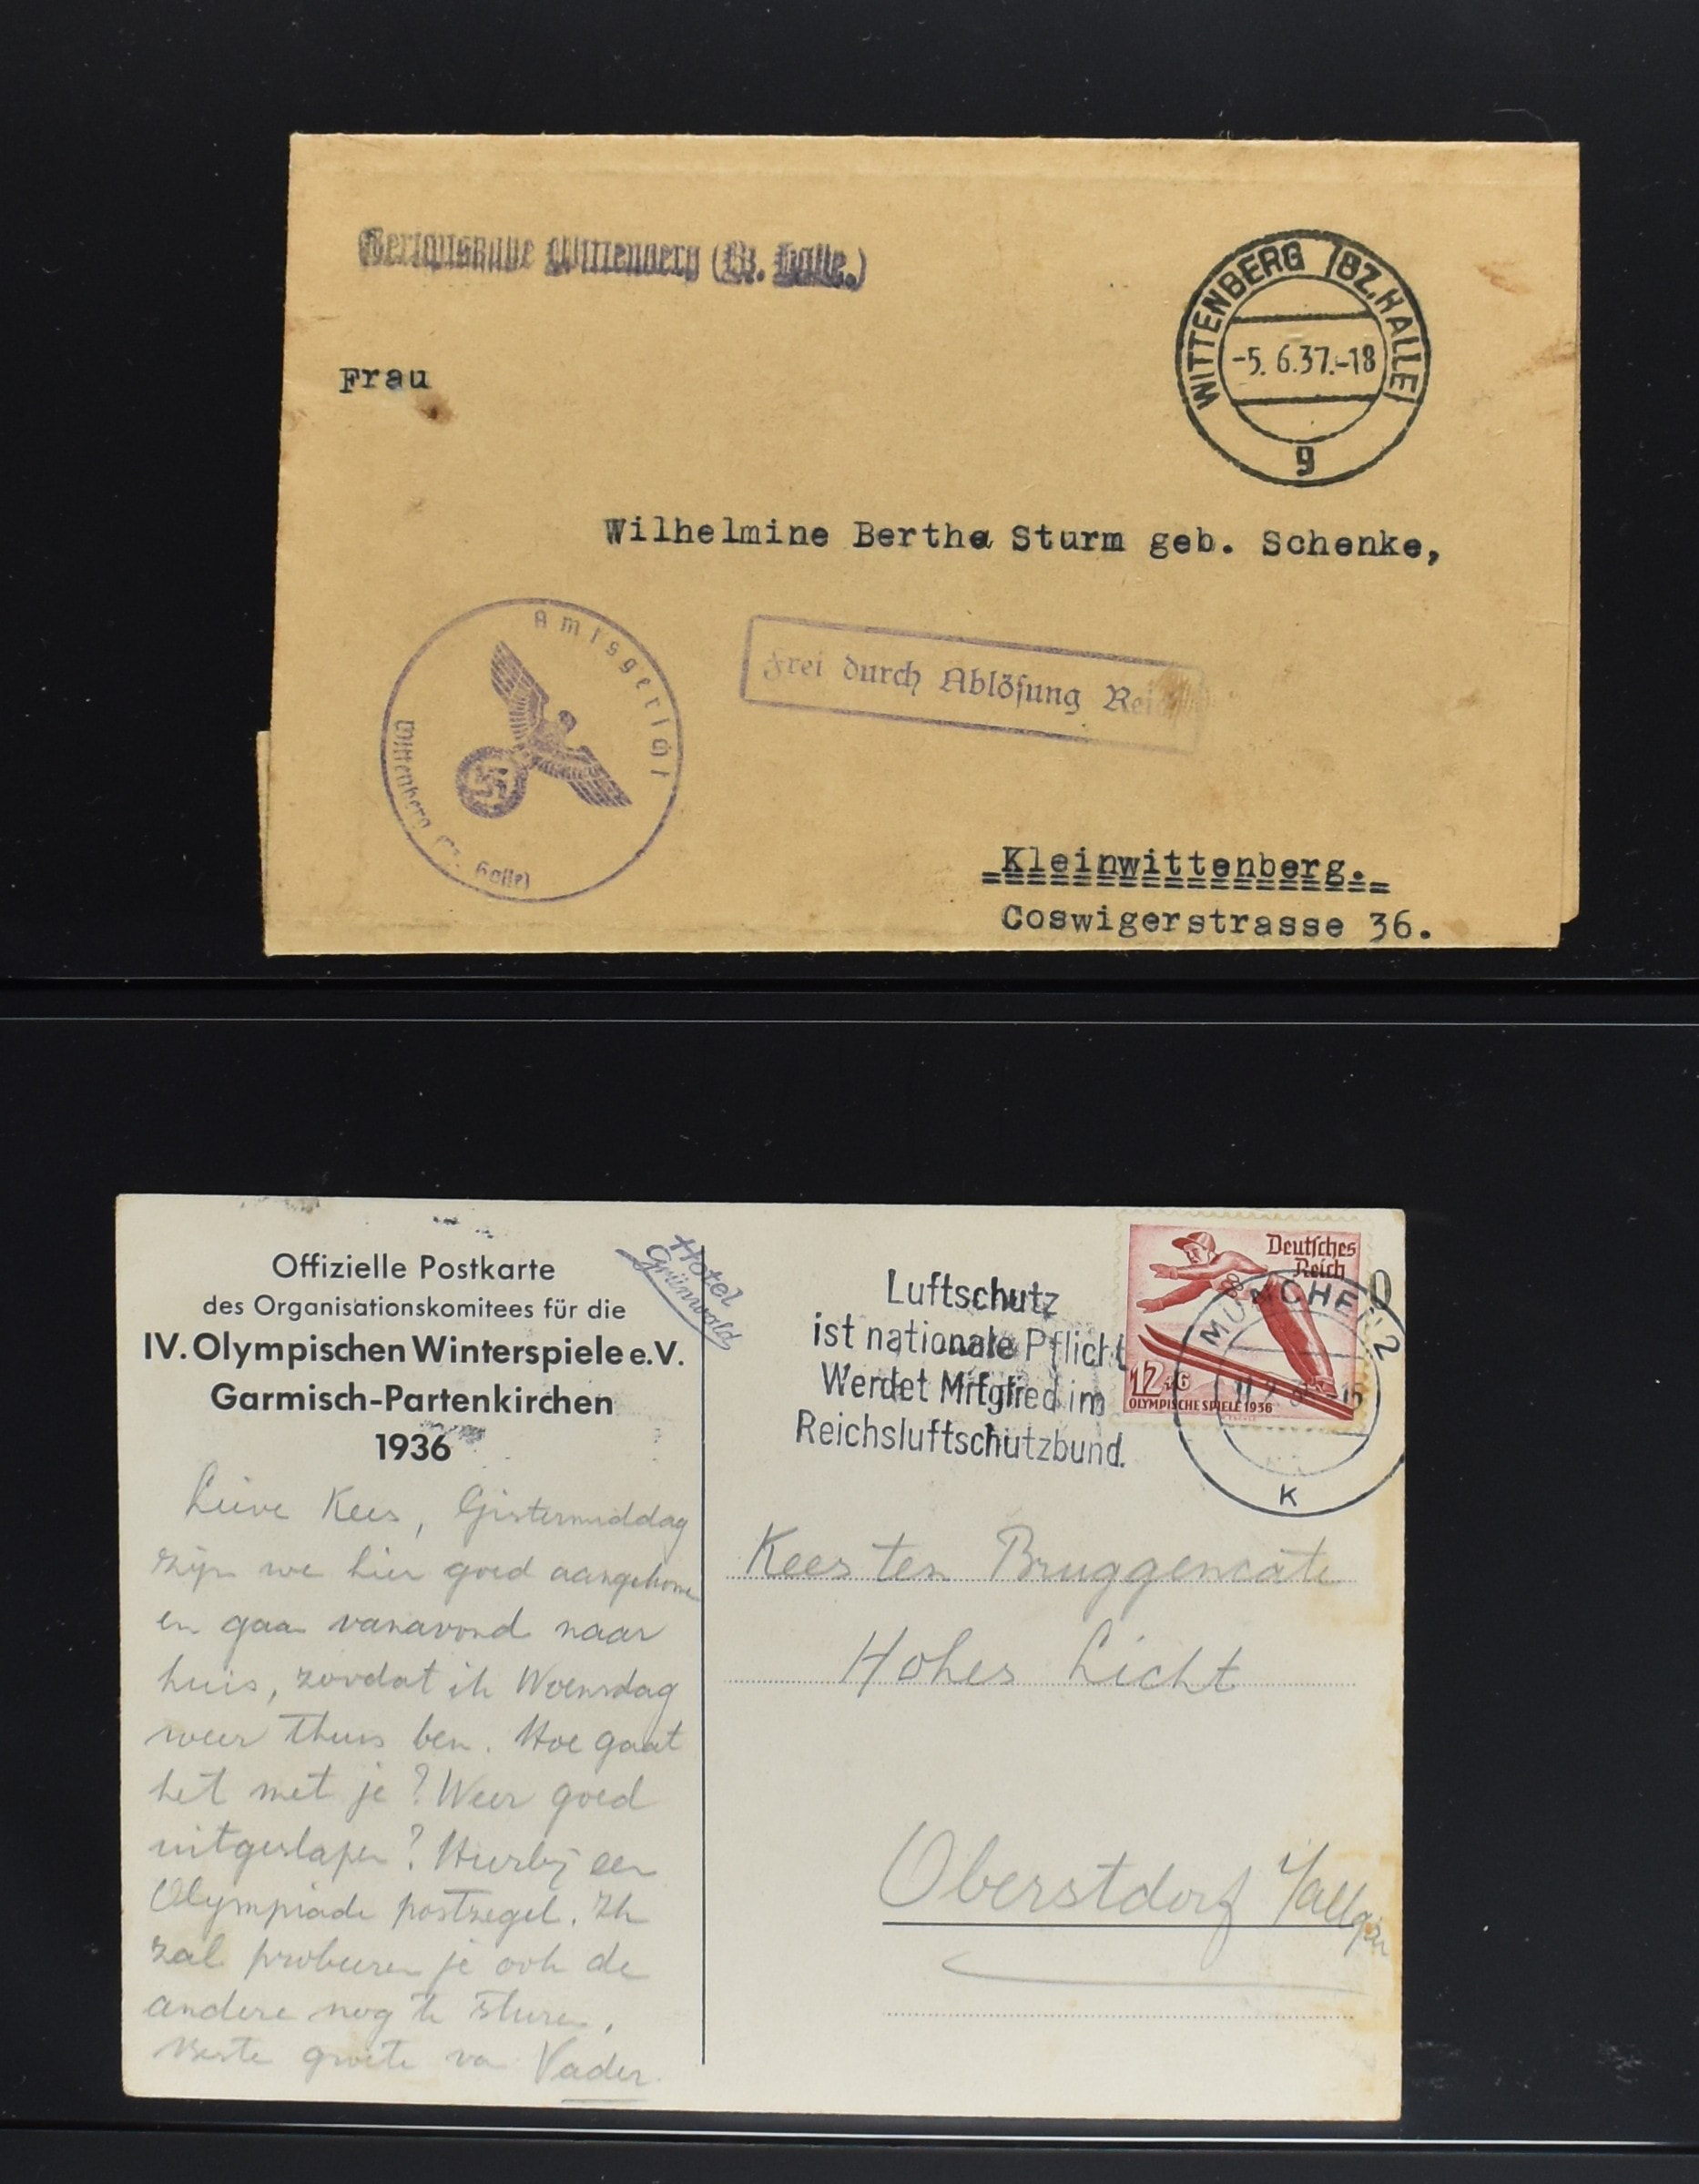 Wittenberg (Bz. Halle.)
WITTENBERG (BZ. HALLE)
-5. 6.37.-18
g
Frau
Wilhelmine Bertha Sturm geb. Schenke,
Amtsgericht
Wittenberg (Bz. Halle)
Frei durch Ablösung Rei
Kleinwittenberg.
Coswigerstrasse 36.
Offizielle Postkarte
des Organisationskomitees für die
IV. Olympischen Winterspiele e.V.
Garmisch-Partenkirchen
1936
Hotel
Grünwald
Luftschutz
ist nationale Pflicht
Werdet Mitglied im
Reichsluftschutzbund.
Deutsches
Reich
12+6
OLYMPISCHE SPIELE 1936
MÜNCHEN 2
K
Lieve Kees, Gistermiddag
zijn we hier goed aangekomen
en gaan vanavond naar
huis, zoodat ik Woensdag
weer thuis ben. Hoe gaat
het met je? Weer goed
uitgeslapen? Hierbij een
Olympiade postzegel. Ik
zal probeeren je ook de
andere nog te sturen.
Beste groete van Vader.
Kees ten Bruggencate
Hohes Licht
Oberstdorf i/Allgäu